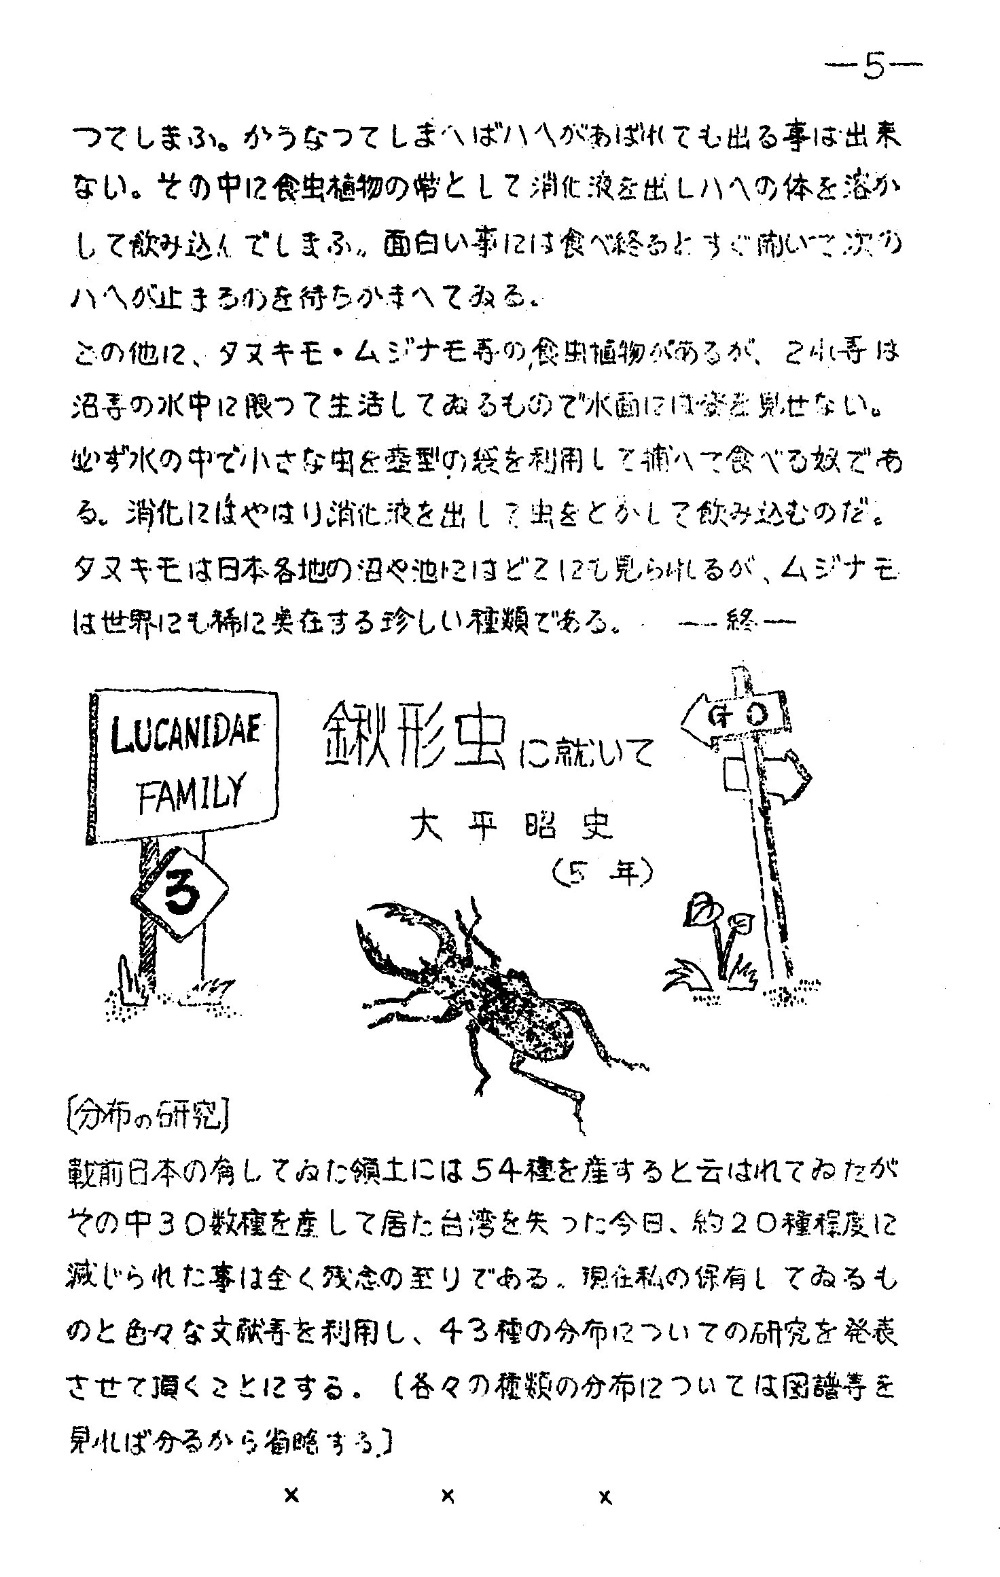 —5—
つてしまふ。かうなつてしまへばハヘがあばれても出る事は出来
ない。その中に食虫植物の常として消化液を出しハヘの体を溶か
して飲み込んでしまふ。面白い事には食べ終るとすぐ開いて次の
ハヘが止まるのを待ちかまへてゐる。
この他に、タヌキモ・ムジナモ等の食虫植物があるが、これ等は
沼等の水中に限つて生活してゐるもので水面には姿を見せない。
必ず水の中で小さな虫を壺型の袋を利用して捕へて食べる奴であ
る。消化にはやはり消化液を出して虫をとかして飲み込むのだ。
タヌキモは日本各地の沼や池にはどこにも見られるが、ムジナモ
は世界にも稀に実在する珍しい種類である。 —終—
LUCANIDAE
FAMILY
3
鍬形虫に就いて
大平昭史
(5年)
GO
〔分布の研究〕
戦前日本の有してゐた領土には54種を産すると云はれてゐたが
その中30数種を産して居た台湾を失つた今日、約20種程度に
減じられた事は全く残念の至りである。現在私の保有してゐるも
のと色々な文献等を利用し、43種の分布についての研究を発表
させて頂くことにする。〔各々の種類の分布については図譜等を
見れば分るから省略する。〕
× × ×